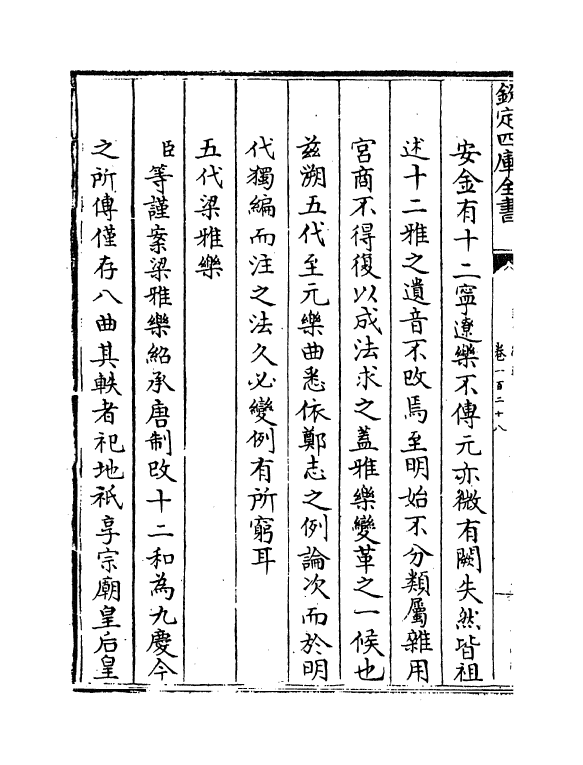 欽定四庫全書
卷一百二十八
安金有十二寧遼樂不傳元亦微有闕失然皆祖
述十二雅之遺音不改焉至明始不分類屬雜用
宮商不得復以成法求之蓋雅樂變革之一候也
兹朔五代至元樂曲悉依鄭志之例論次而於明
代獨編而注之法久必變例有所窮耳
五代梁雅樂
臣等謹案梁雅樂紹承唐制改十二和為九慶今
之所傳僅存八曲其軼者祀地祇享宗廟皇后皇